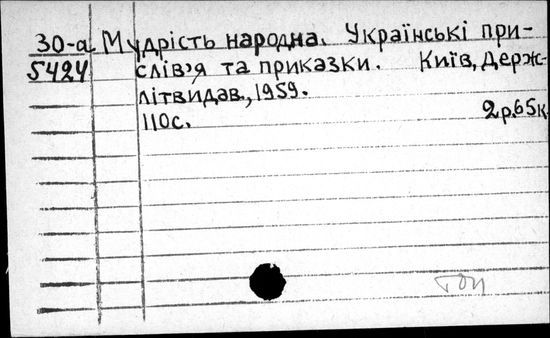 30-а Мудрість народна. Українські при-
5424 слів'я та приказки. Київ, Держ-
літвидав, 1959.
110с. 2р.65к